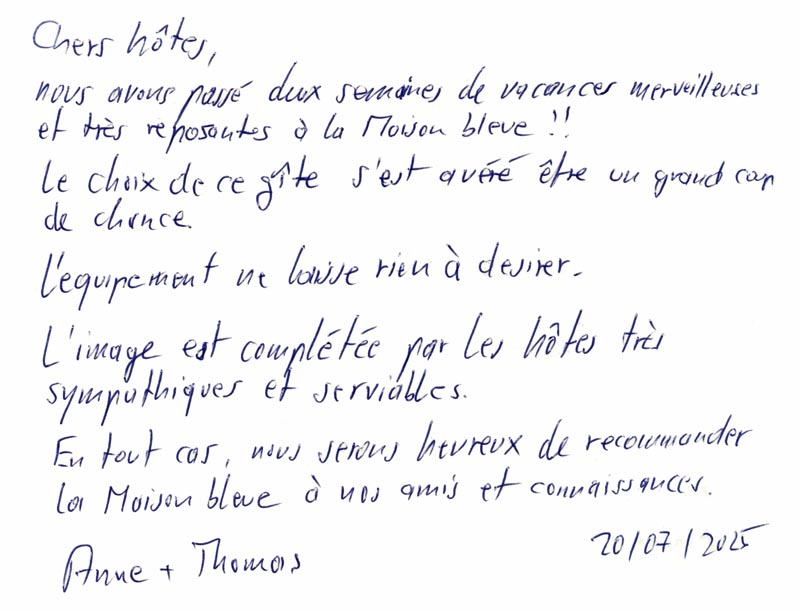 Chers hôtes,
nous avons passé deux semaines de vacances merveilleuses
et très reposantes à la Maison bleue !!
Le choix de ce gîte s'est avéré être un grand cop
de chance.
L'equipement ne laisse rien à desirer.
L'image est complétée par les hôtes très
sympathiques et serviables.
En tout cas, nous serons heureux de recommander
la Maison bleue à nos amis et connaissances.
Anne + Thomas 20/07/2025